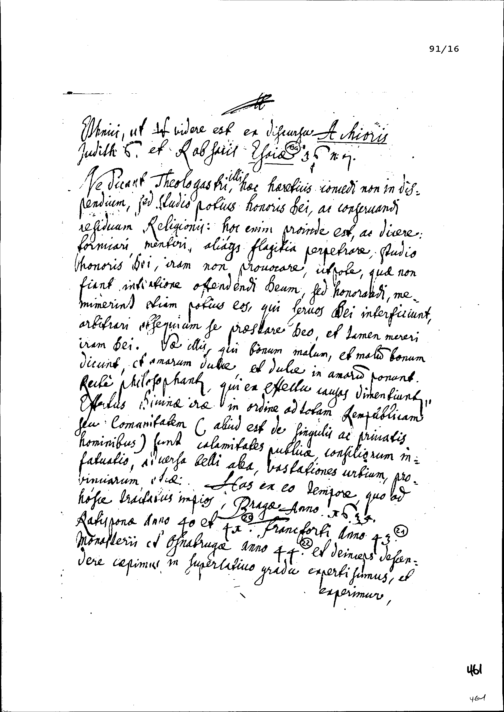 91/16
Ethnici, ut videre est ex discursu Achioris
Judith 5. et Rabsacis Esaiæ 36 n 7.
Ne dicant Theologastri, hæc hæreticis concedi non in dis=
pendium, sed studio potius honoris Dei, ac conservandi
residuam Religionis: hoc enim proinde est, ac dicere:
fornicari mentiri, aliaqs flagitia perpetrare, studio
honoris Dei, iram non provocare, utpote, quæ non
fiant intentione offendendi Deum, sed honorandi, me=
minerint etiam potius eos, qui servos Dei interficiunt,
arbitrari obsequium se præstare Deo, et tamen mereri
iram Dei. Væ illis, qui bonum malum, et malum bonum
dicunt, et amarum dulce, et dulce in amarum ponunt.
Recte philosophant, qui ex effectu causas dimentiunt,
Effectus Divinæ iræ in ordine ad totam Rempublicam
seu Comunitatem (aliud est de singulis ac privatis
hominibus) sunt calamitates publicæ, consiliorum in=
fatuatio, adversa belli alea, vastationes urbium, pro=
vinciarum, etc: Has ex eo tempore, quo ad
hosce tractatus impios, Pragæ Anno 1635.
Ratisponæ Anno 40 et 41. Francforti Anno 43 (21)
Monasterii et Osnabrugæ anno 44. (22) et deinceps descen=
dere cæpimus in superlativo gradu experti sumus, et
experimur,
461
461